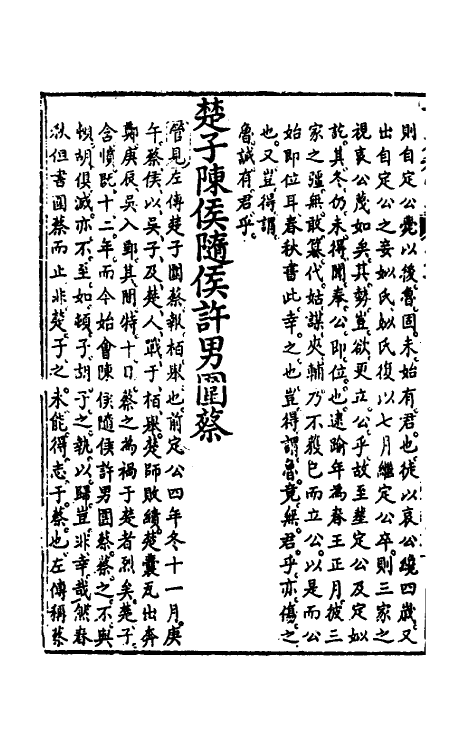 則自定公薨以後魯固未始有君也徒以哀公纔四歲又
出自定公之妾姒氏姒氏復以七月繼定公卒則三家之
視哀公茂如矣其勢豈欲更立公乎故至葬定公及定姒
訖其冬仍未得聞奉公即位也逮踰年為春王正月彼三
家之彊無敢簒代姑謀夾輔乃不獲已而立公以是而公
始即位耳春秋書此幸之也豈得謂魯竟無君乎亦傷之
也又豈得謂
魯誠有君乎
楚子陳侯隨侯許男圍蔡
管見左傳楚子圍蔡報栢舉也前定公四年冬十一月庚
午蔡侯以吳子及楚人戰于栢舉楚師敗績楚囊瓦出奔
鄭庚辰吳入郢其間特十日蔡之為禍于楚者烈矣楚子
含憤既十二年而今始會陳侯隨侯許男圍蔡蔡之不與
頓胡俱滅亦不至如頓子胡子之執以歸豈非幸哉然春
秋但書圍蔡而止非楚子之未能得志于蔡也左傳稱蔡